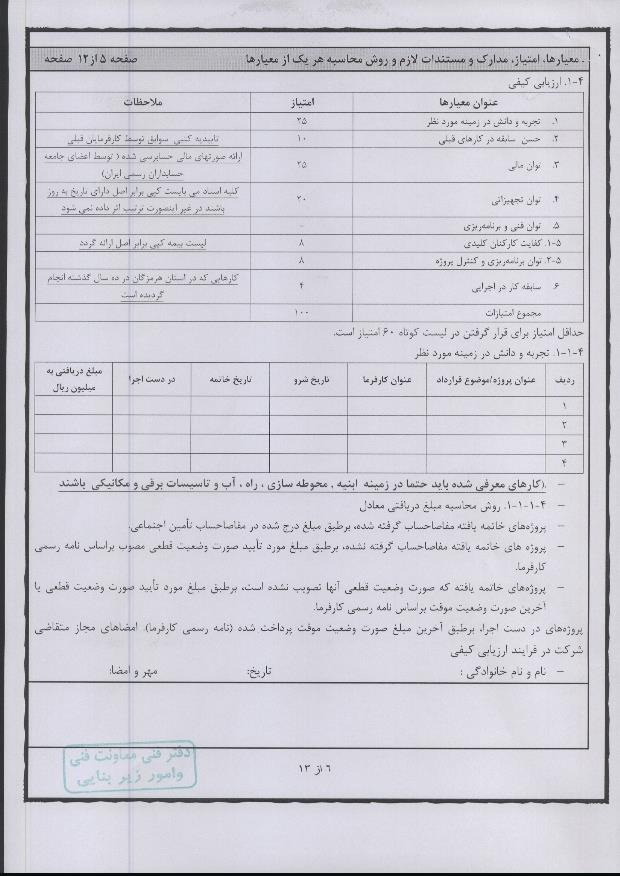 . معیارها، امتیاز، مدارک و مستندات لازم و روش محاسبه هر یک از معیارها صفحه ۵ از ۱۲ صفحه
۴-۱. ارزیابی کیفی
عنوان معیارها امتیاز ملاحظات
۱. تجربه و دانش در زمینه مورد نظر ۲۵
۲. حسن سابقه در کارهای قبلی ۱۰ تاییدیه کتبی سوابق توسط کارفرمایان قبلی
۳. توان مالی ۲۵ ارائه صورتهای مالی حسابرسی شده ( توسط اعضای جامعه
حسابداران رسمی ایران)
۴. توان تجهیزاتی ۲۰ کلیه اسناد می بایست کپی برابر اصل دارای تاریخ به روز
باشند در غیر اینصورت ترتیب اثر داده نمی شود
۵. توان فنی و برنامه‌ریزی -
۵-۱. کفایت کارکنان کلیدی ۸ لیست بیمه کپی برابر اصل ارائه گردد
۵-۲. توان برنامه‌ریزی و کنترل پروژه ۸
۶. سابقه کار در اجرایی ۴ کارهایی که در استان هرمزگان در ده سال گذشته انجام
گردیده است
مجموع امتیازات ۱۰۰
حداقل امتیاز برای قرار گرفتن در لیست کوتاه ۶۰ امتیاز است.
۴-۱-۱. تجربه و دانش در زمینه مورد نظر
ردیف عنوان پروژه/موضوع قرارداد عنوان کارفرما تاریخ شرو تاریخ خاتمه در دست اجرا مبلغ دریافتی به
میلیون ریال
۱
۲
۳
۴
– .(کارهای معرفی شده باید حتما در زمینه ابنیه , محوطه سازی ، راه ، آب و تاسیسات برقی و مکانیکی باشند
– ۴-۱-۱-۱. روش محاسبه مبلغ دریافتی معادل
– پروژه‌های خاتمه یافته مفاصاحساب گرفته شده، برطبق مبلغ درج شده در مفاصاحساب تأمین اجتماعی.
– پروژه های خاتمه یافته مفاصاحساب گرفته نشده، برطبق مبلغ مورد تأیید صورت وضعیت قطعی مصوب براساس نامه رسمی
کارفرما.
– پروژه‌های خاتمه یافته که صورت وضعیت قطعی آنها تصویب نشده است، برطبق مبلغ مورد تأیید صورت وضعیت قطعی یا
آخرین صورت وضعیت موقت براساس نامه رسمی کارفرما.
پروژه‌های در دست اجرا، برطبق آخرین مبلغ صورت وضعیت موقت پرداخت شده (نامه رسمی کارفرما). امضاهای مجاز متقاضی
شرکت در فرایند ارزیابی کیفی
– نام و نام خانوادگی : تاریخ: مهر و امضا:
دفتر فنی معاونت فنی
وامور زیر بنایی
۶ از ۱۳